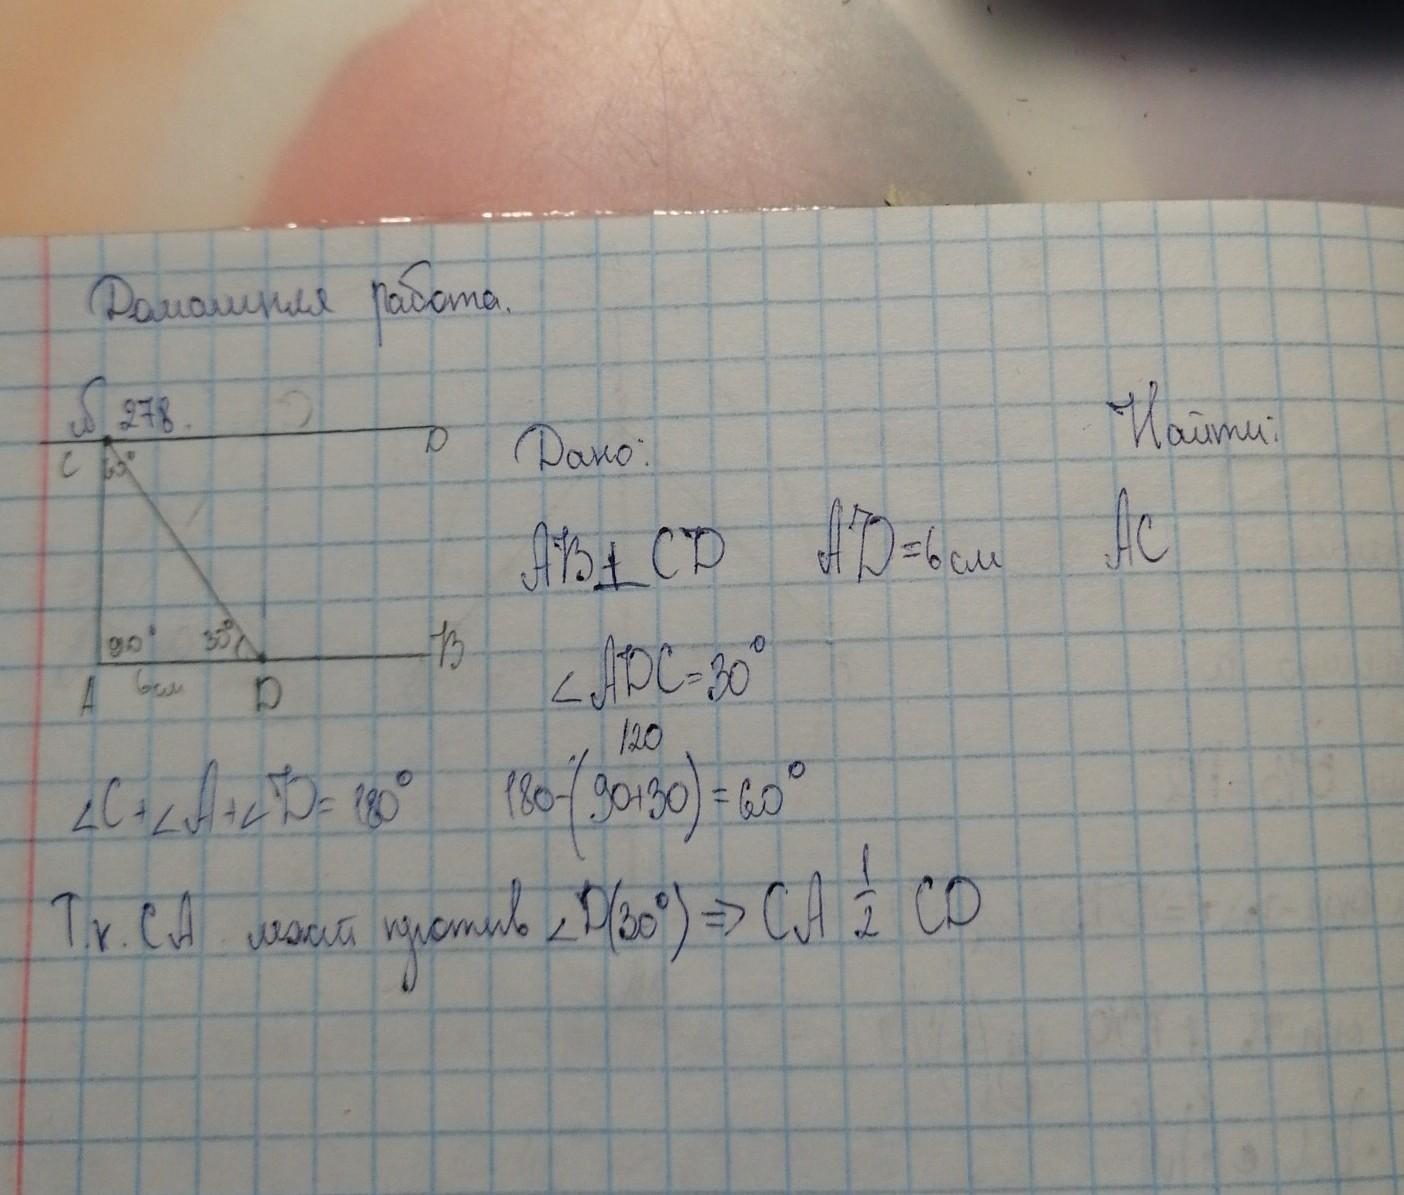 Домашняя работа.
№ 278.
C 60° D
90° 30° B
A 6 см D
Дано: Найти:
AB ⊥ CD AD = 6 см AC
∠ADC = 30°
120
∠C + ∠A + ∠D = 180° 180 - (90+30) = 60°
Т.к. CA лежит против ∠D(30°) ⇒ CA 1/2 CD